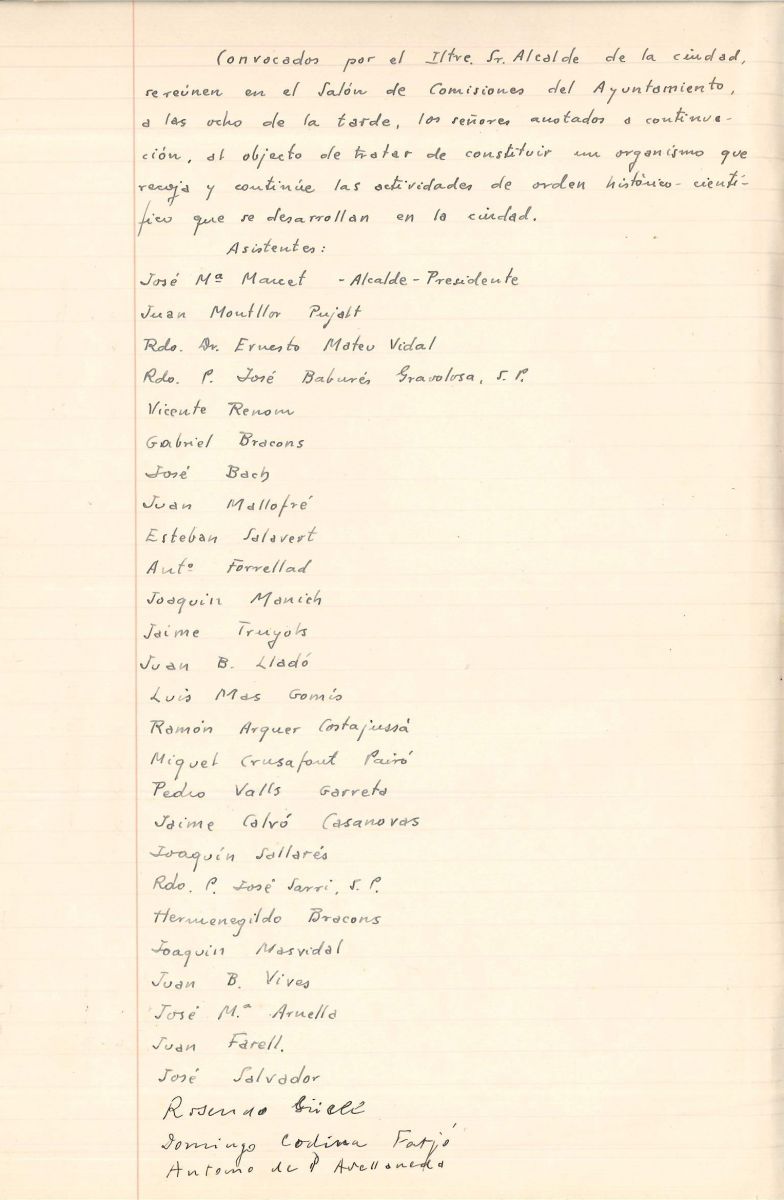 Convocados por el Iltre. Sr. Alcalde de la ciudad,
se reúnen en el Salón de Comisiones del Ayuntamiento,
a las ocho de la tarde, los señores anotados a continua-
ción, al objecto de tratar de constituir un organismo que
recoja y continúe las actividades de orden histórico-cientí-
fico que se desarrollan en la ciudad.
Asistentes:
José Mª Marcet - Alcalde-Presidente
Juan Montllor Pujalt
Rdo. Dr. Ernesto Mateu Vidal
Rdo. P. José Baburés Gravolosa, S. P.
Vicente Renom
Gabriel Bracons
José Bach
Juan Mallofré
Esteban Salavert
Antº Forrellad
Joaquin Manich
Jaime Truyols
Juan B. Lladó
Luis Mas Gomis
Ramón Arquer Costajussá
Miquel Crusafont Pairó
Pedro Valls Garreta
Jaime Calvó Casanovas
Joaquín Sallarés
Rdo. P. José Sarri, S. P.
Hermenegildo Bracons
Joaquin Masvidal
Juan B. Vives
José M.ª Arnella
Juan Farell.
José Salvador
Rosendo Güell
Domingo Codina Fatjó
Antonio de P Avellaneda